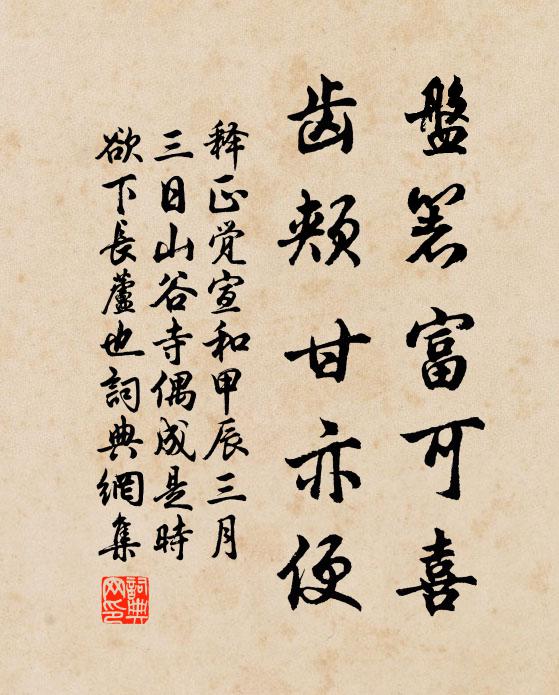 盤箸富可喜
齿頰甘亦便
释正觉宣和甲辰三月
三日山谷寺偶成是時
欲下長蘆也詞典網集
詞典
网印